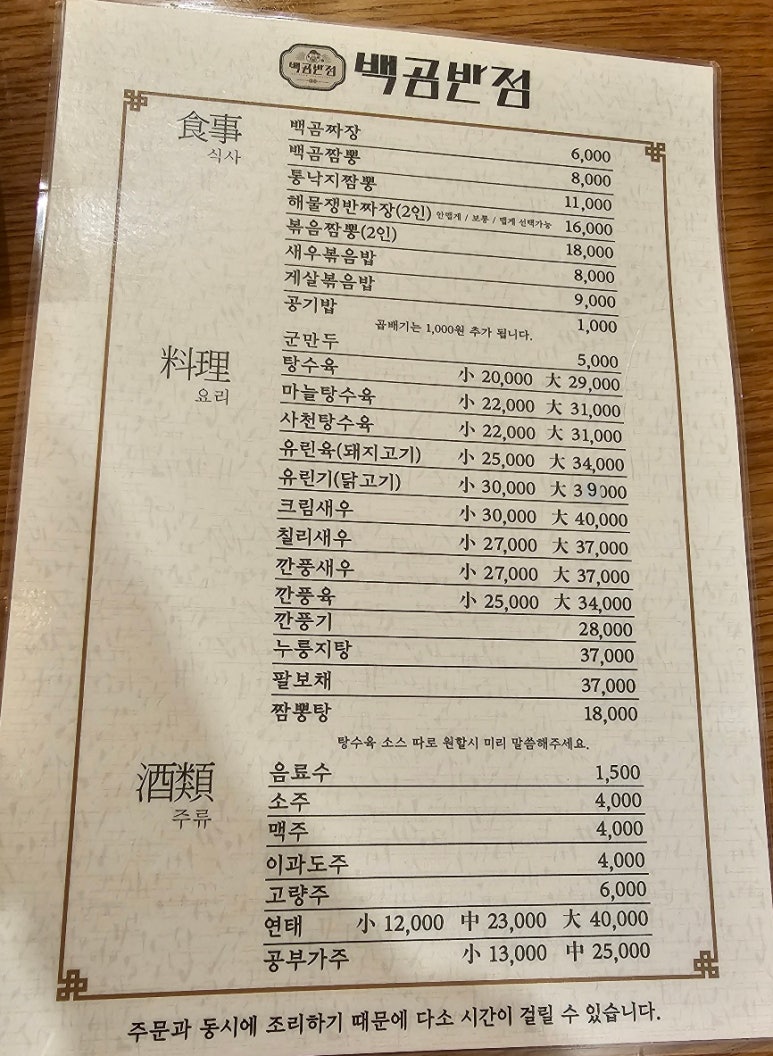 백곰반점 백곰반점
食事
식사
백곰짜장 6,000
백곰짬뽕 8,000
통낙지짬뽕 11,000
해물쟁반짜장(2인) 안맵게 / 보통 / 맵게 선택가능 16,000
볶음짬뽕(2인) 18,000
새우볶음밥 8,000
게살볶음밥 9,000
공기밥 1,000
곱배기는 1,000원 추가 됩니다.
料理
요리
군만두 5,000
탕수육 小 20,000 大 29,000
마늘탕수육 小 22,000 大 31,000
사천탕수육 小 22,000 大 31,000
유린육(돼지고기) 小 25,000 大 34,000
유린기(닭고기) 小 30,000 大 39000
크림새우 小 30,000 大 40,000
칠리새우 小 27,000 大 37,000
깐풍새우 小 27,000 大 37,000
깐풍육 小 25,000 大 34,000
깐풍기 28,000
누룽지탕 37,000
팔보채 37,000
짬뽕탕 18,000
탕수육 소스 따로 원할시 미리 말씀해주세요.
酒類
주류
음료수 1,500
소주 4,000
맥주 4,000
이과도주 4,000
고량주 6,000
연태 小 12,000 中 23,000 大 40,000
공부가주 小 13,000 中 25,000
주문과 동시에 조리하기 때문에 다소 시간이 걸릴 수 있습니다.